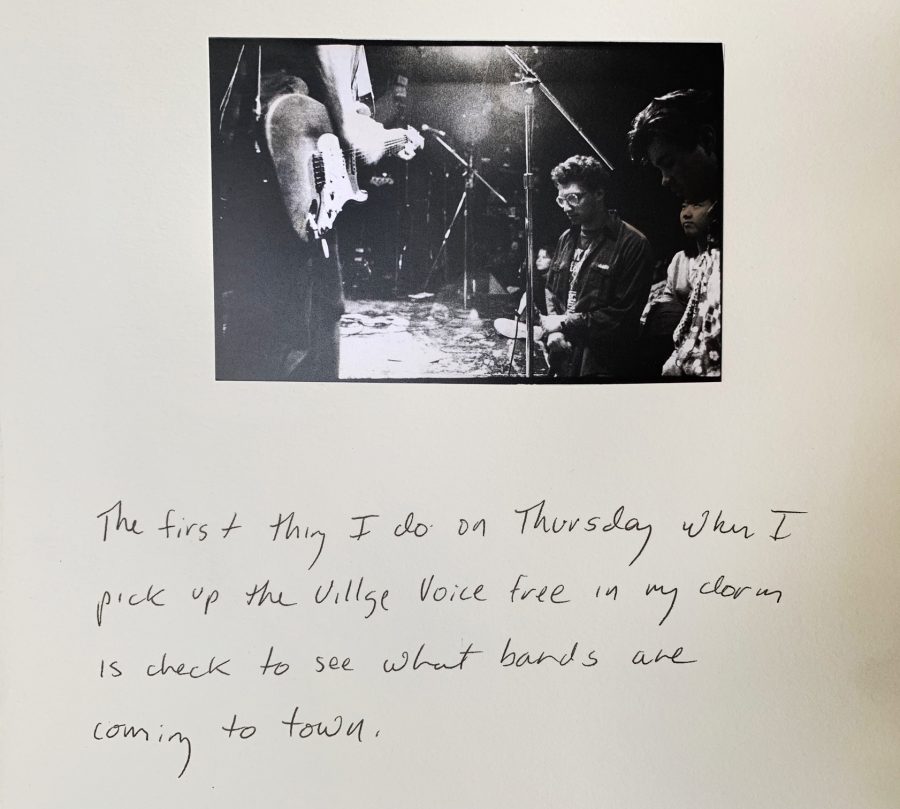 The first thing I do on Thursday when I
pick up the Village Voice free in my dorm
is check to see what bands are
coming to town.